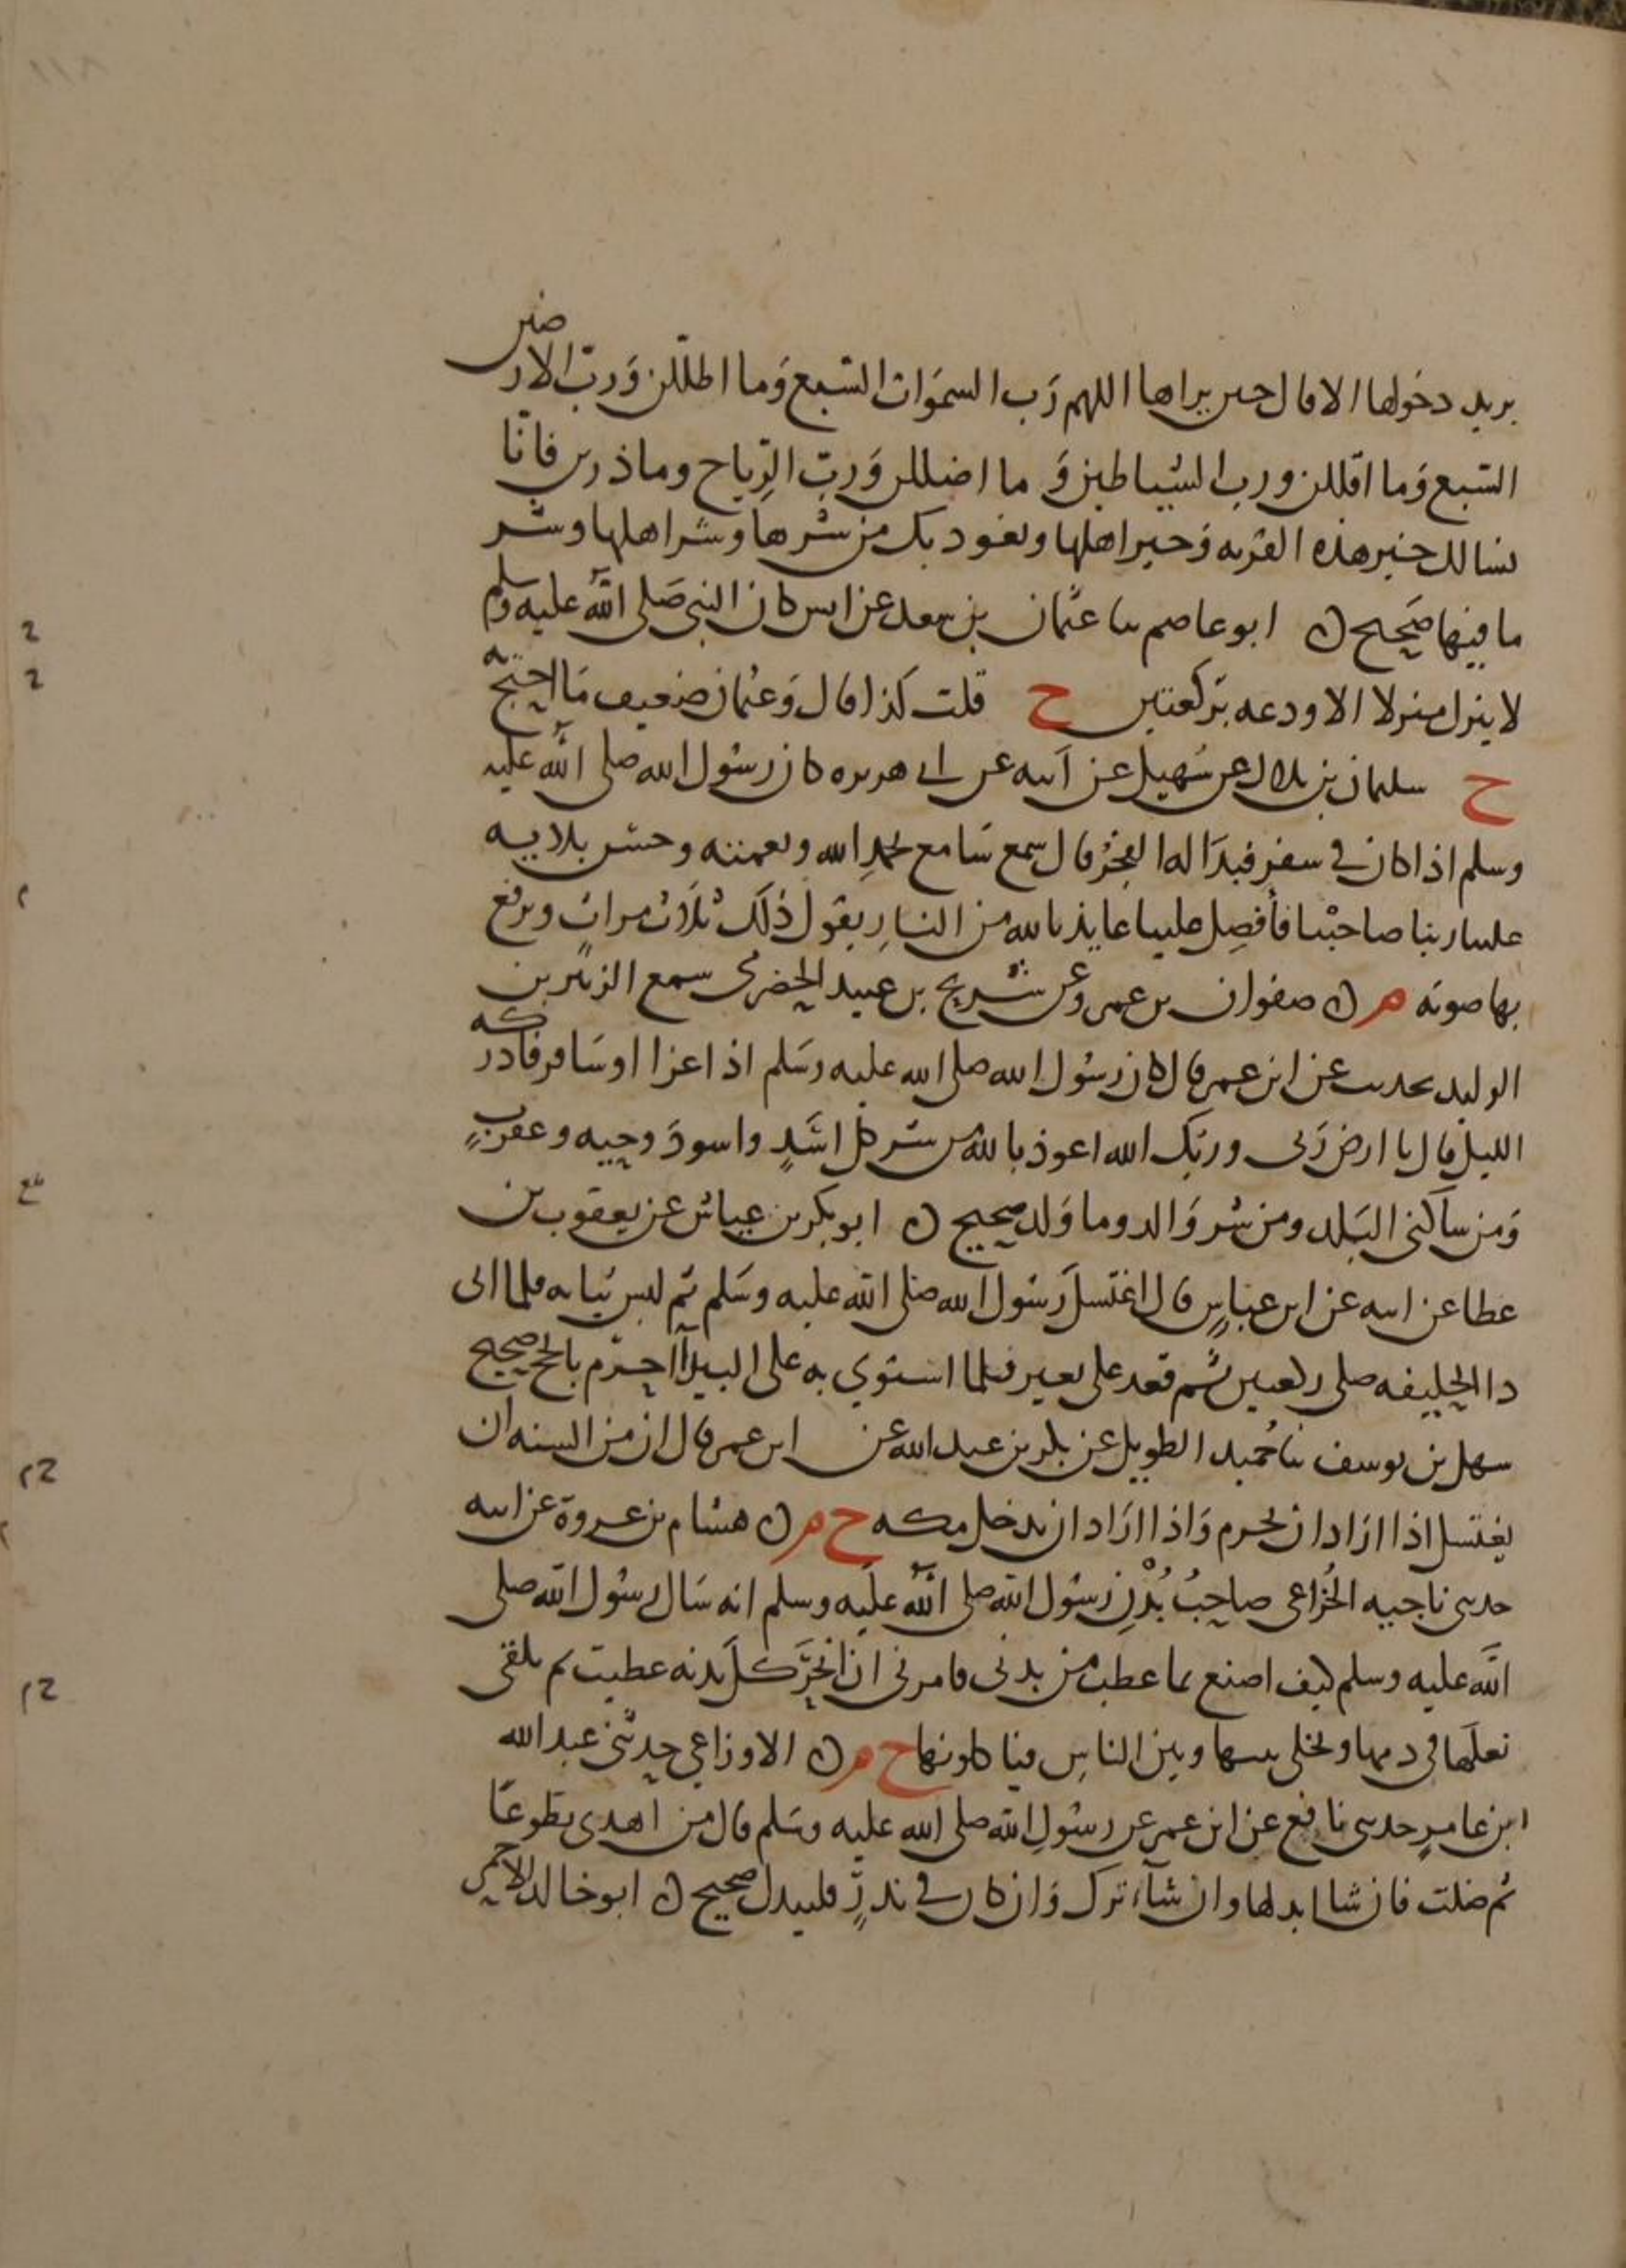 ١١٨
يريد دخولها الا قال حين يراها اللهم رَب السمَوات السبع وَما اظللن وَربّ الارضين
السَبع وَما اقللن ورب الشياطين وَ ما اضللن وَربّ الرِياح وما ذرين فانّا
نسالك خير هذه القريه وَخير اهلها ونعوذ بك من شرها وشر اهلها وشر
ما فيها صَحيح ن ابو عاصم نا عثمان بن سعد عن انس كان النبي صَلى اللّه عليه وسلم
لا ينزل منزلا الا ودعه بركعتين ح قلت كذا قال وَعثمان ضعيف مَا احتجّ به
ح سليمان بن بلال عن سُهيل عن ابيه عن ابي هريره كان رسُول الله صلى اللّه عليه
وسلم اذا كان في سفر فبدَا له الفجرُ قال سمع سَامع بحمدِ الله ونعمته وحسن بلاييه
علينا ربنا صاحبْنا فأفضِل علينا عايذ بالله من النارِ يقول ذلك ثلاث مرات ويرفع
بها صوته م ن صفوان بن عمرو عن شريح بن عبيد الحضرمى سمع الزبير بن
الوليد يحدث عن ابن عمر قال كان رسُول الله صلى الله عليه وسَلم اذا غزا او سَافر فادركه
الليل قال يا ارض رَبى وربّك الله اعوذ بالله من شر كل اسَدٍ واسودَ وحيه وعقربٍ
وَمن ساكنى البَلد ومن شر وَالد وما وَلد صحيح ن ابو بكر بن عياش عن يعقوب بن
عطا عن ابيه عن ابن عباسٍ قال اغتسل رَسُول الله صلى اللّه عليه وسَلم ثم لبس ثيابه فلما اتى
ذا الحليفه صلى ركعتين ثم قعد على بعير فلما استوي به على البيدآ احرَم بالحج صحيح
سهل بن يوسف نا حُميد الطويل عن بكر بن عبد الله عن ابن عمر قال ان من السنه ان
يغتسل اذا ارَاد ان يحرم وَاذا ارَاد ان يدخل مكه ح م ن هشام بن عروة عن ابيه
حدثنى ناجيه الخُزاعى صاحِبُ بُدْنِ رَسُول اللّه صلى اللّه علَيه وسلم انه سَال رسُول اللّه صلى
اللّه عليه وسلم كيف اصنع بما عطب من بدنى فامرنى ان انحرَ كلَ بدنه عطبت ثم يلقى
نعلَها فى دمها ويخلى بينها وبين الناسِ فياكلونها ح م ن الاوزاعي حدثنى عبد الله
ابن عامرٍ حدثنى نافع عن ابن عمر عن رسُولِ اللّه صلى الله عليه وسَلم قال من اهدى تطوعًا
ثم ضلت فان شا ابدلها وان شآء ترك وَان كان في نذرٍ فليبدل صحيح ن ابو خالد الاحمر